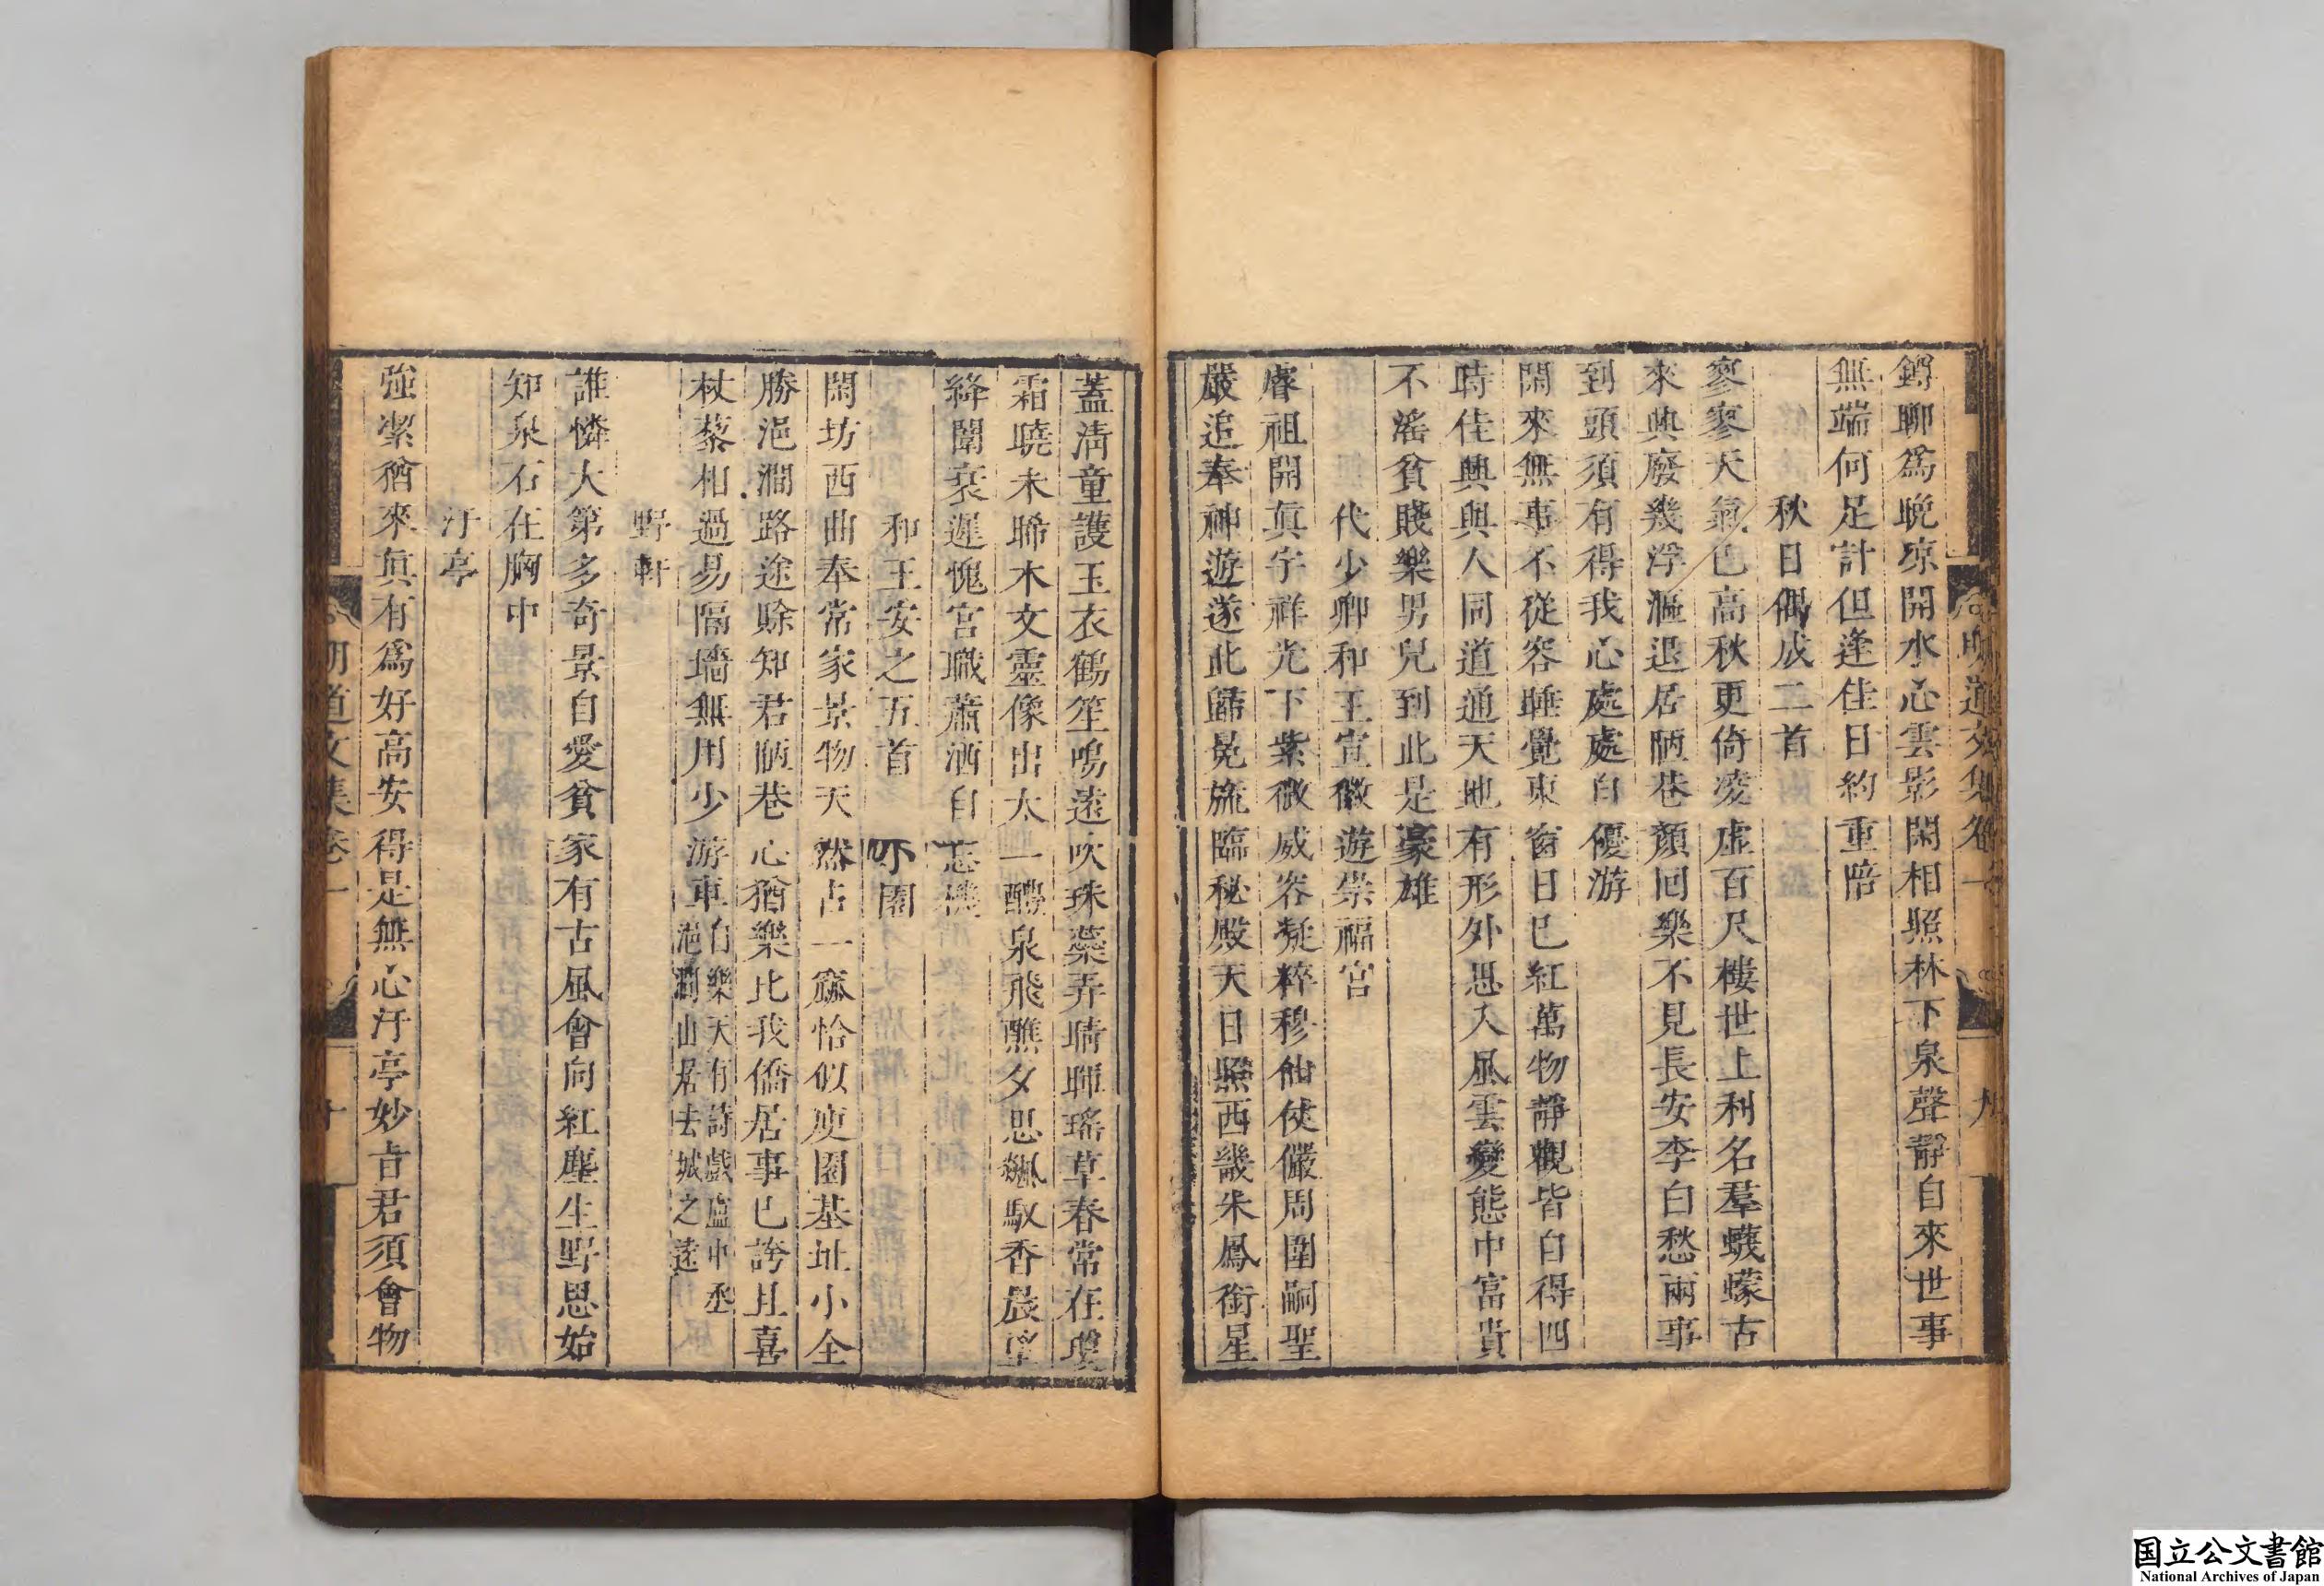 明道文集卷一
九
鐏聊爲晚凉開水心雲影閑相照林下泉聲靜自來世事
無端何足計但逢佳日約重陪
秋日偶成二首
寥寥天氣已高秋更倚凌虛百尺樓世上利名羣蠛蠓古
來興廢幾浮漚退居陋巷顏回樂不見長安李白愁兩事
到頭須有得我心處處自優游
閑來無事不從容睡覺東窗日已紅萬物靜觀皆自得四
時佳興與人同道通天地有形外思入風雲變態中富貴
不滛貧賤樂男兒到此是豪雄
代少卿和王宣徽遊崇福宮
睿祖開真宇祥光下紫微威容凝粹穆仙仗儼周圍嗣聖
嚴追奉神遊遂此歸晃旒臨秘殿天日照西畿朱鳳銜星
蓋清童護玉衣鶴笙鳴遠吹珠蘂弄晴暉瑤草春常在瓊
霜曉未晞木文靈像出太一醴泉飛醮夕思飆馭香晨望
絳闈衰遲愧宮職蕭洒自忘機
和王安之五首 小園
閑坊西曲奉常家景物天然占一窊恰似庾園基址小全
勝浥澗路途賖知君陋巷心猶樂比我僑居事已誇且喜
杖藜相過易隔墻無用少游車
白樂天有詩戲盧中丞
浥澗山居去城之遠
野軒
誰憐大第多奇景自愛貧家有古風會向紅塵生野思始
知泉石在胸中
汙亭
強潔猶來真有爲好高安得是無心汙亭妙㫖君須會物
明道文集卷一
十
国立公文書館
National Archives of Japan